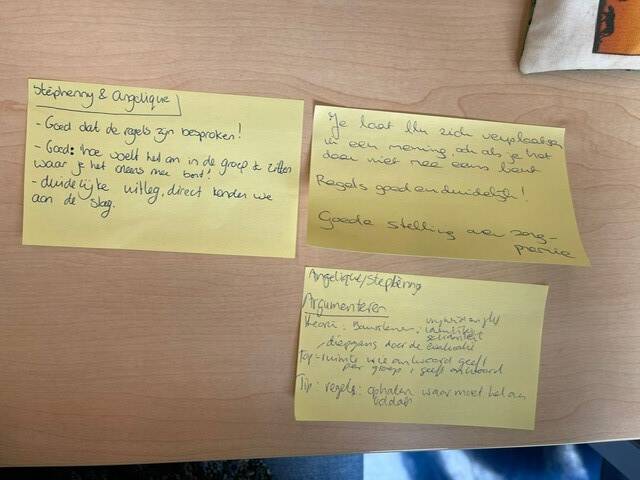 Stephenny & Angelique
- Goed dat de regels zijn besproken!
- Goed: hoe voelt het om in de groep te zitten
waar je het oneens mee bent!
- duidelijke uitleg, direct konden we
aan de slag.
Je laat lln zich verplaatsen
in een mening, ook als je het
daar niet mee eens bent
Regels goed en duidelijk!
Goede stelling over zorg-
premie
Angelique/Stephenny
Argumenteren
Theorie: Bouwstenen:
diepgang door de
Top - ruimte wie antwoord geeft
per groep, geeft antwoord
Tip: regels: ophalen waar moet het aan